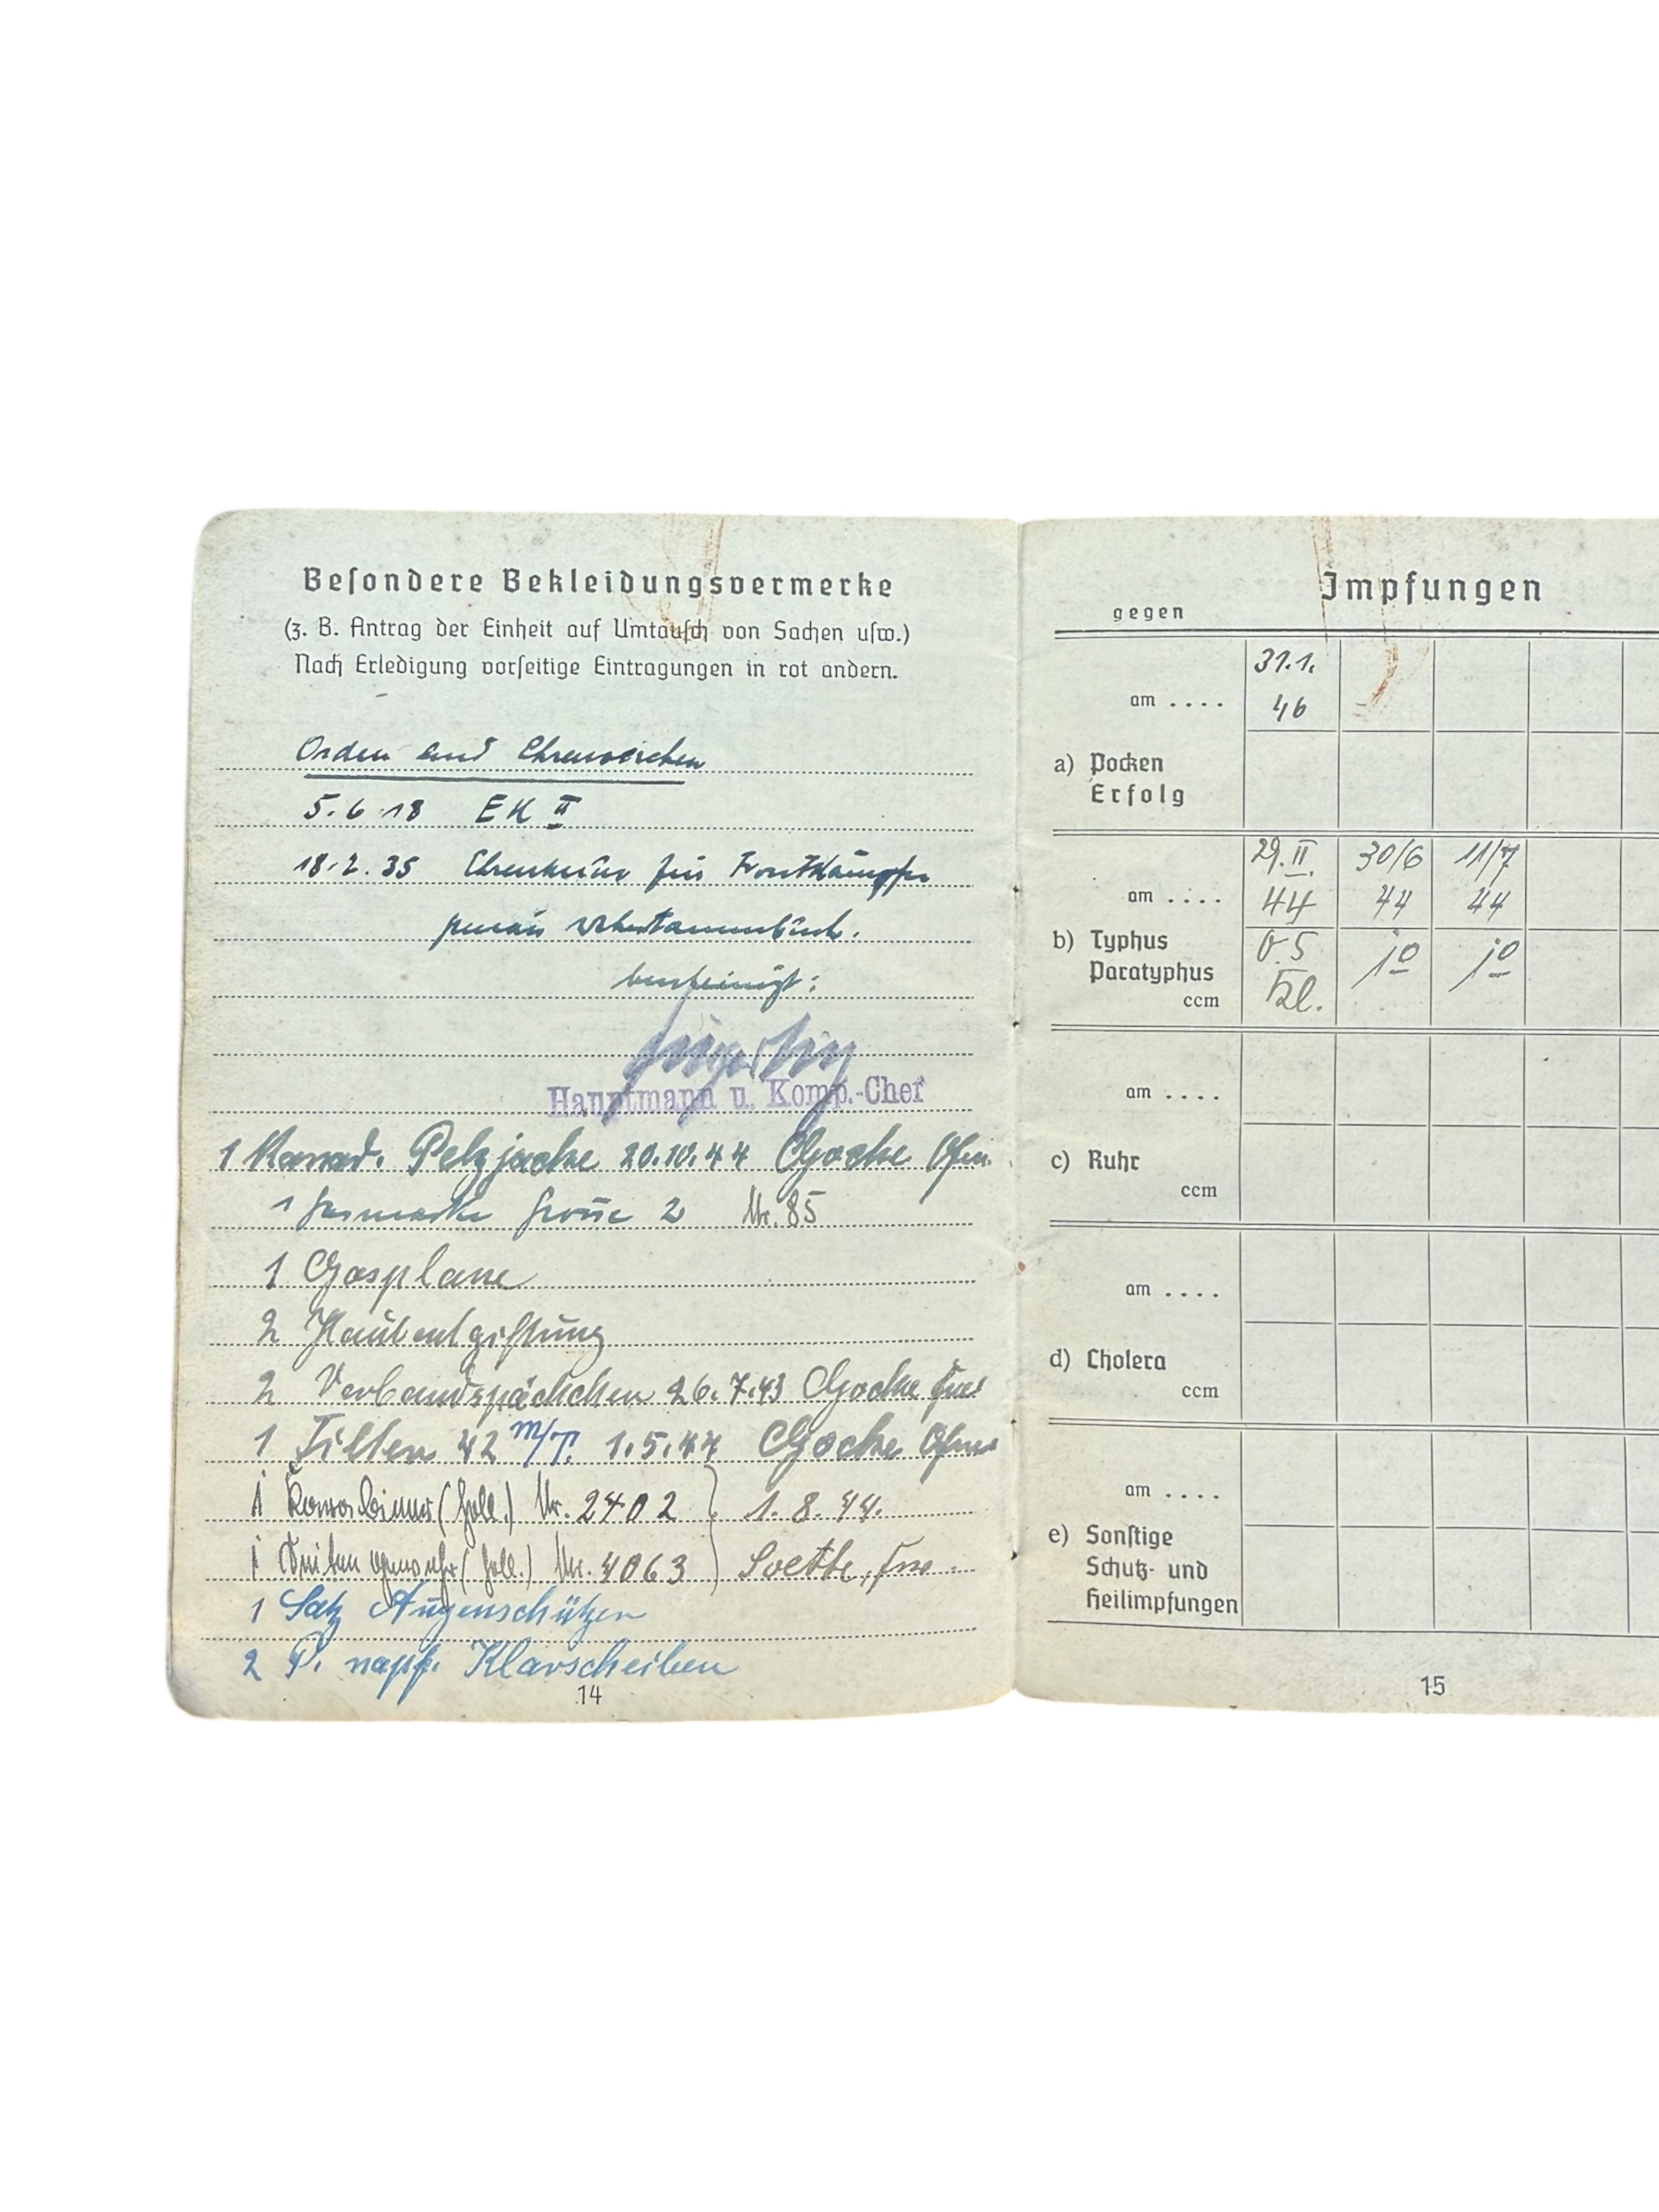 Besondere Bekleidungsvermerke
(z. B. Antrag der Einheit auf Umtausch von Sachen usw.)
Nach Erledigung vorseitige Eintragungen in rot andern.
Orden und Ehrenzeichen
5.6.18 EK II
18.2.35 Ehrenkreuz für Frontkämpfer
gemäß Wehrstammbuch.
bescheinigt:
Hauptmann u. Komp.-Chef
1 Kanad. Pelzjacke 20.10.44 Gocke
1 Gasmaske Größe 2 Nr. 85
1 Gasplane
2 Hautentgiftung
2 Verbandspäckchen 26.7.43 Gocke
1 Filter 42 m/T. 1.5.44 Gocke
1 Karabiner (holl.) Nr. 2402 1.8.44.
1 Seitengewehr (holl.) Nr. 4063
1 Satz Augenschützer
2 P. Klarscheiben
14
Impfungen
gegen
31.1.
am .... 46
a) Pocken
Erfolg
29.II. 30/6 11/7
am .... 44 44 44
b) Typhus 0.5 1.0 1.0
Paratyphus
ccm
am ....
c) Ruhr
ccm
am ....
d) Cholera
ccm
am ....
e) Sonstige
Schutz- und
Heilimpfungen
15